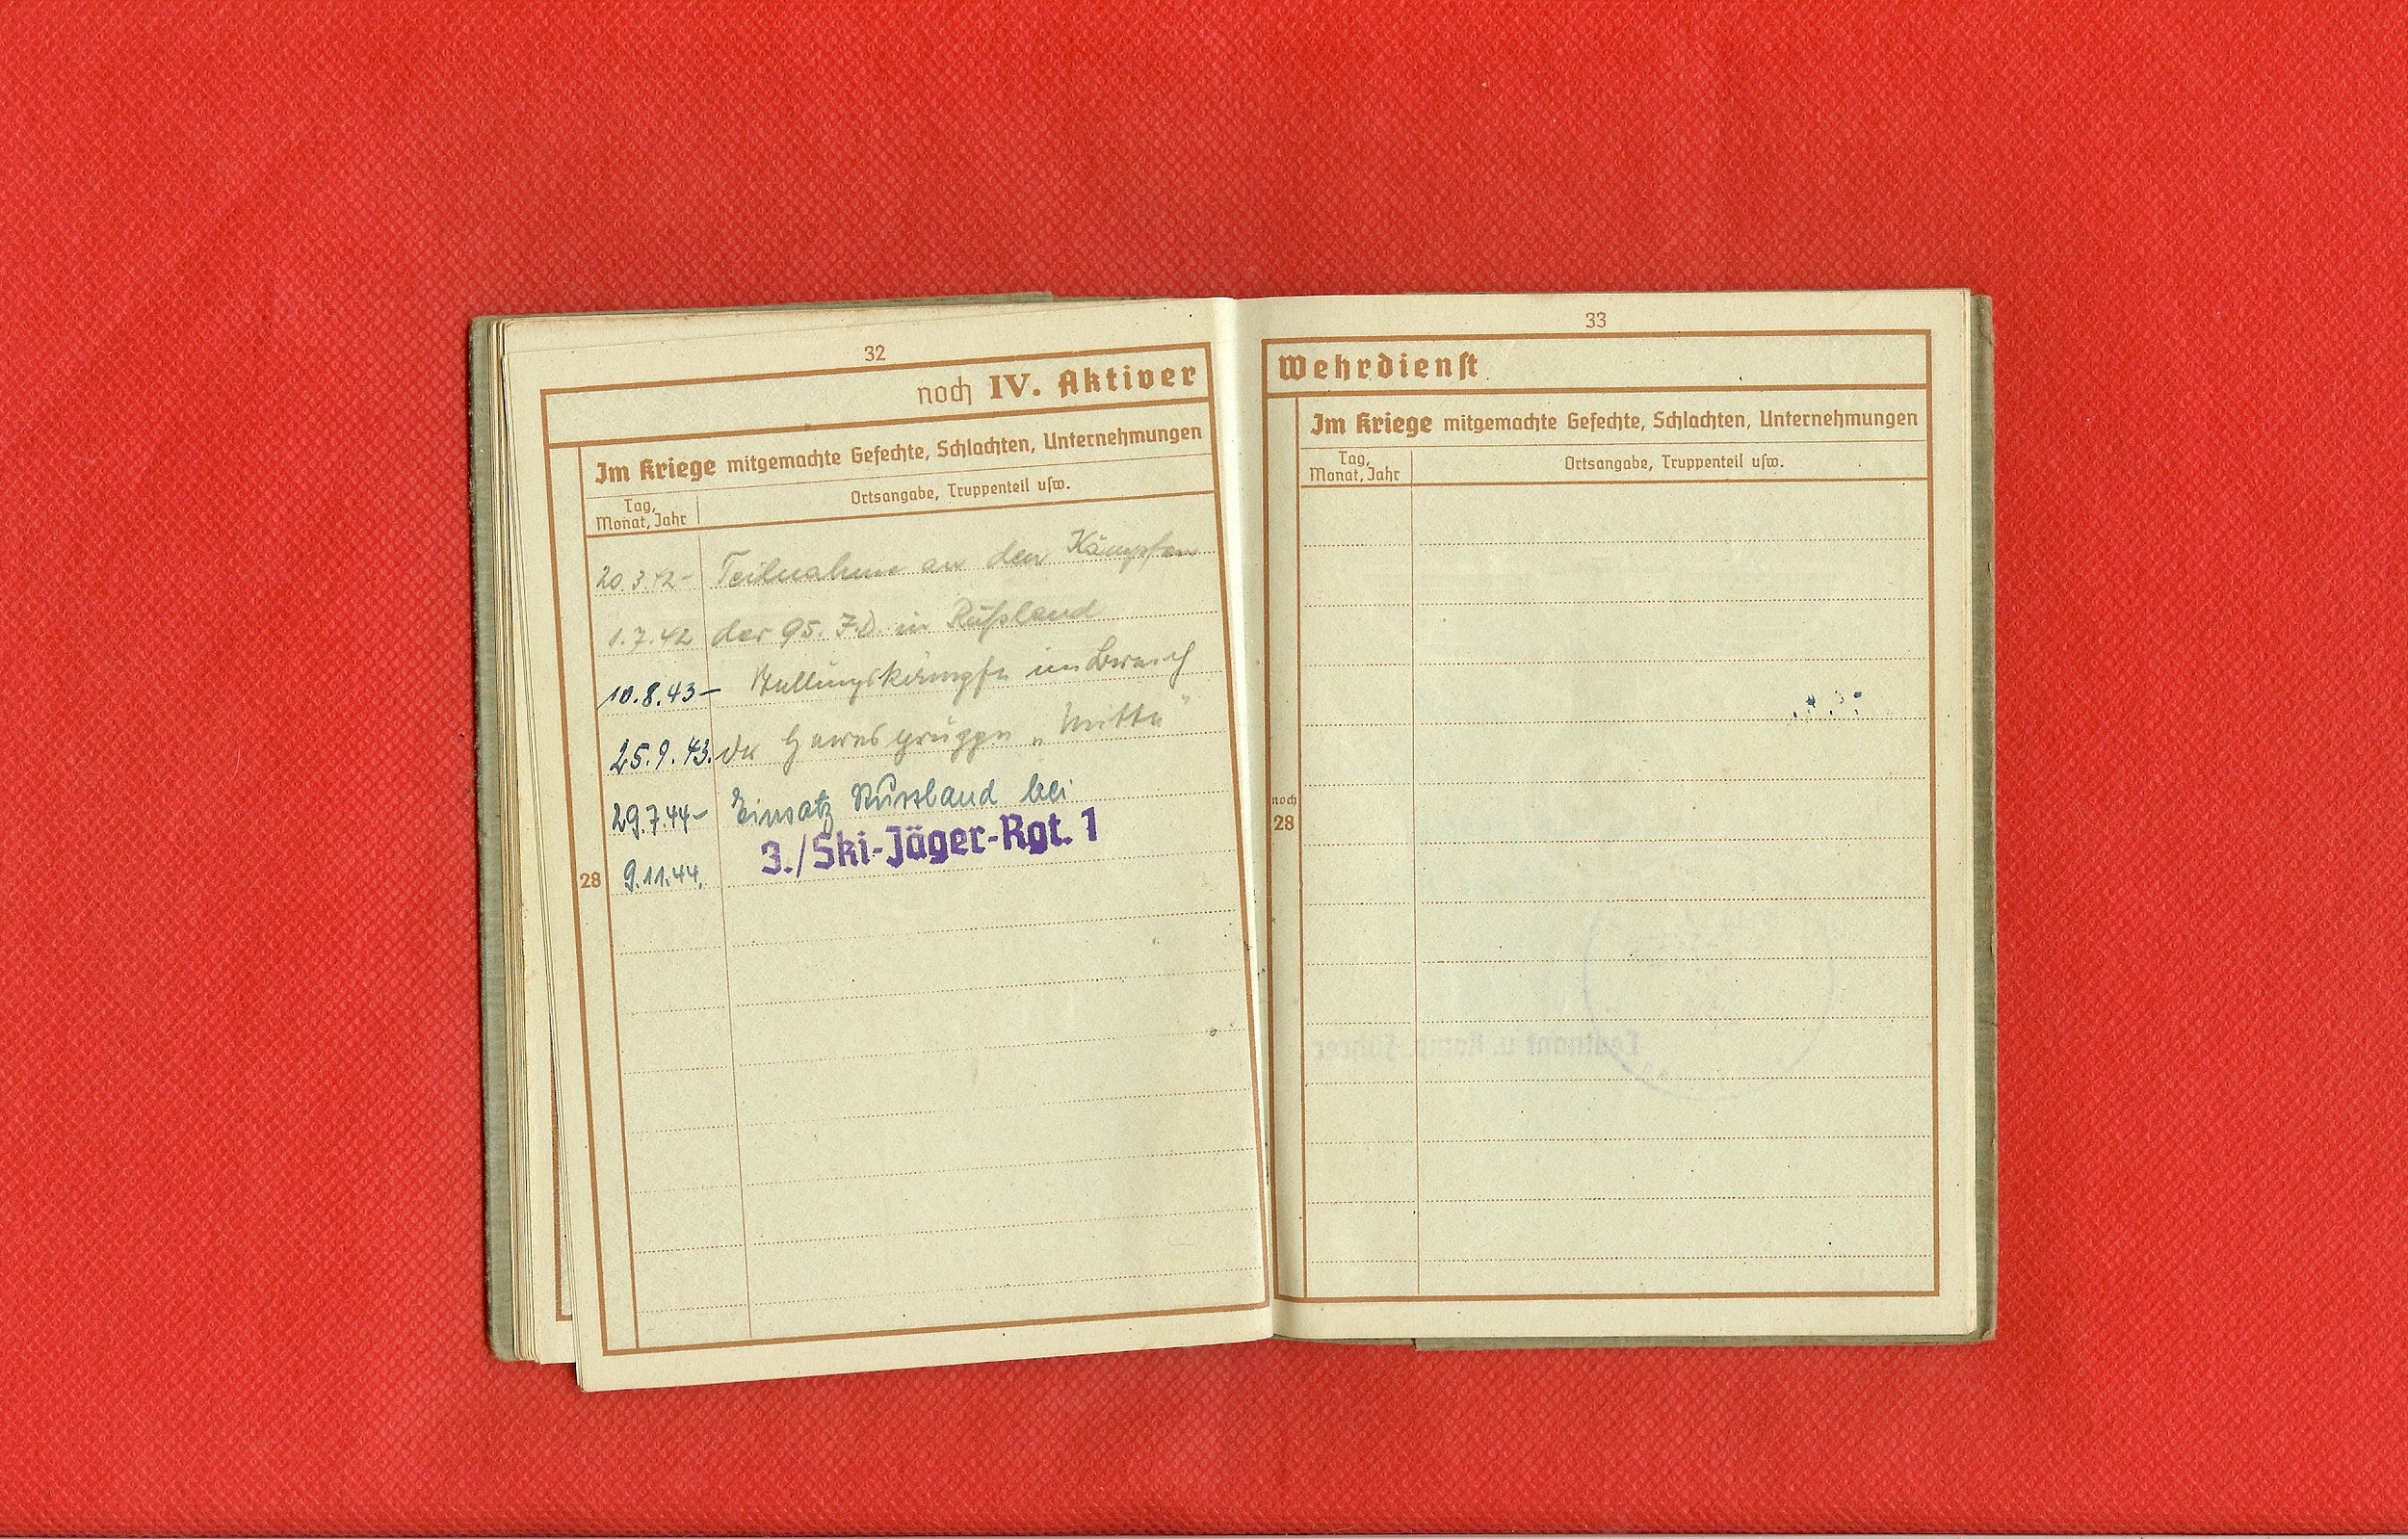 32
noch IV. Aktiver
Im Kriege mitgemachte Gefechte, Schlachten, Unternehmungen
Tag,
Monat, Jahr
Ortsangabe, Truppenteil usw.
20.3.42- Teilnahme an den Kämpfen
1.7.42 der 95. I.D. in Rußland
10.8.43- Stellungskämpfe im Bereich
25.9.43. der Heeresgruppe „Mitte"
29.7.44- Einsatz Russland bei
3./Ski-Jäger-Rgt. 1
28 9.11.44.
33
Wehrdienst
Im Kriege mitgemachte Gefechte, Schlachten, Unternehmungen
Tag,
Monat, Jahr
Ortsangabe, Truppenteil usw.
noch
28